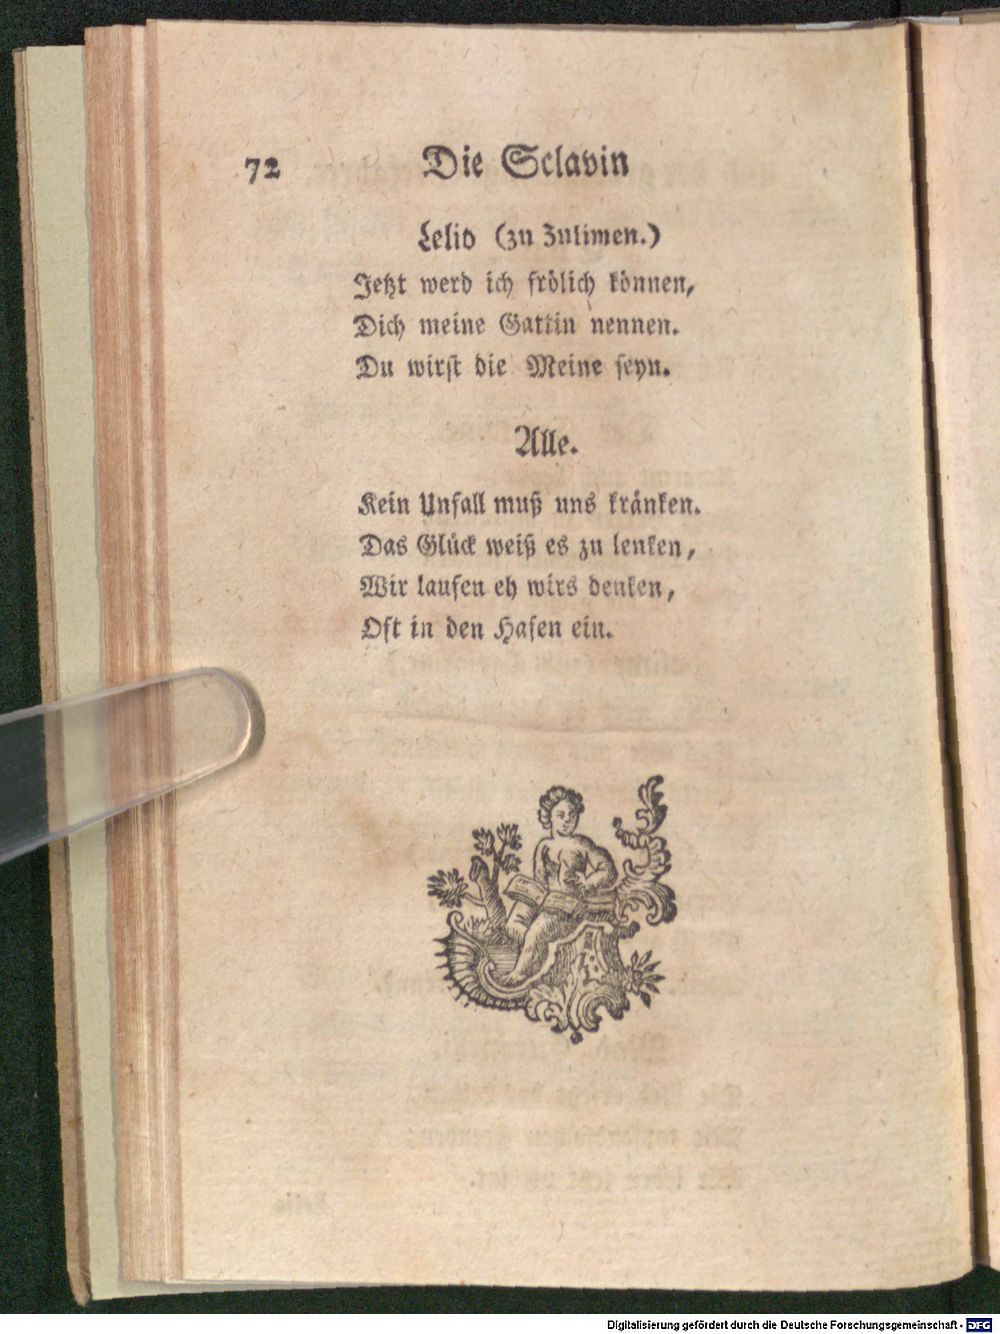 72 Die Sclavin
Lelio (zu Zulimen.)
Jetzt werd ich frölich können,
Dich meine Gattin nennen.
Du wirst die Meine seyn.
Alle.
Kein Unfall muß uns kränken.
Das Glück weiß es zu lenken,
Wir laufen eh wirs denken,
Oft in den Hafen ein.
Digitalisierung gefördert durch die Deutsche Forschungsgemeinschaft - DFG